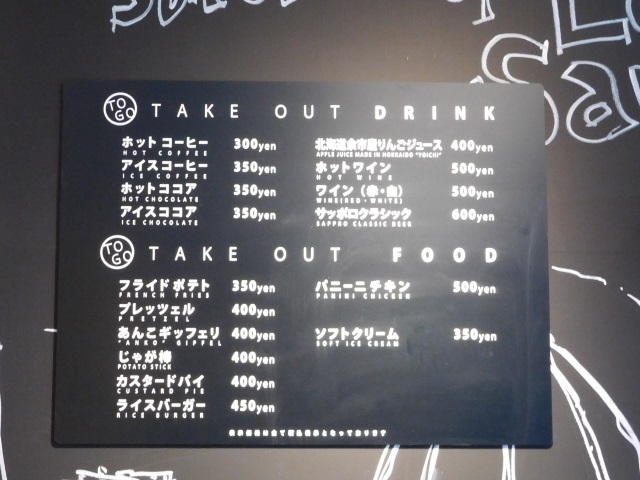 TO GO TAKE OUT DRINK
ホットコーヒー 300yen
HOT COFFEE
アイスコーヒー 350yen
ICE COFFEE
ホットココア 350yen
HOT CHOCOLATE
アイスココア 350yen
ICE CHOCOLATE
北海道余市産りんごジュース 400yen
APPLE JUICE MADE IN HOKKAIDO "YOICHI"
ホットワイン 500yen
HOT WINE
ワイン(赤・白) 500yen
WINE(RED・WHITE)
サッポロクラシック 600yen
SAPPRO CLASSIC BEER
TO GO TAKE OUT FOOD
フライドポテト 350yen
FRENCH FRIES
プレッツェル 400yen
PRETZEL
あんこギッフェリ 400yen
"ANKO" GIPFEL
じゃが棒 400yen
POTATO STICK
カスタードパイ 400yen
CUSTARD PIE
ライスバーガー 450yen
RICE BURGER
パニーニチキン 500yen
PANINI CHICKEN
ソフトクリーム 350yen
SOFT ICE CREAM